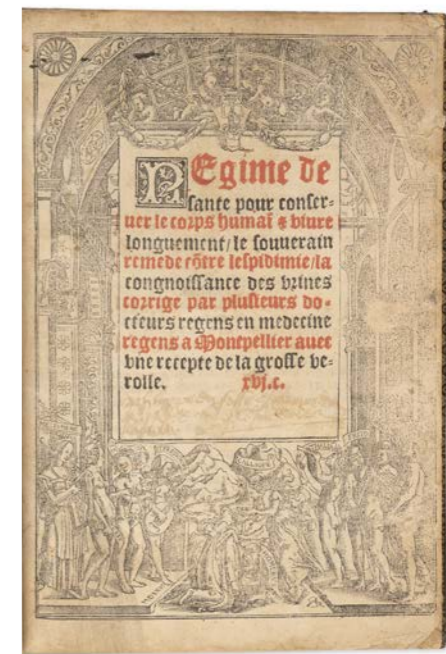 REgime de
sante pour conser-
uer le corps humaĩ ⁊ viure
longuement/le souuerain
remede cõtre lespidimie/la
congnoissance des vrines
corrige par plusieurs do-
cteurs regens en medecine
regens a Montpellier auec
vne recepte de la grosse ve-
rolle. xvj.c.